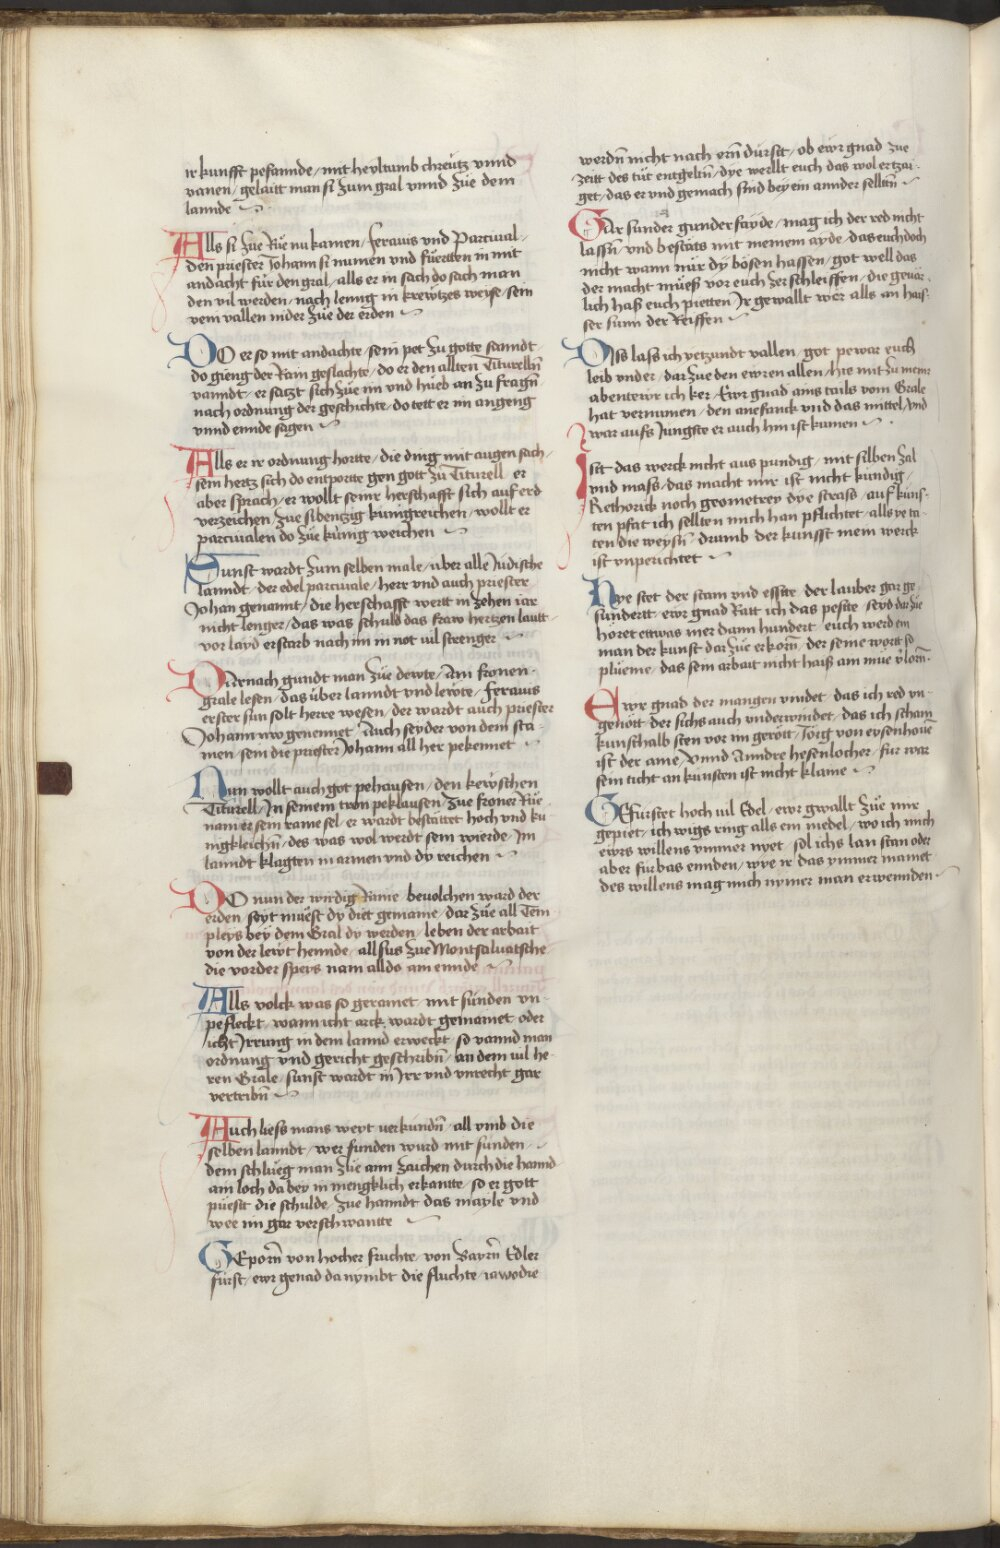 ir kunfft pesannde / mit heyltumb chreütz vnnd
vanen / gelaitt man si zum gral vnnd zúe dem
lannde
Alls si zúe Rúe nu kamen / ferauis vnd Parciual /
den priester Johann si numen vnd fúertten in mit
andacht für den gral / alls er in sach do sach man
den vil werden / nach lenng in krewtzes weyse / sein
vein vallen nider zúe der erden
DO er so mit andachte / sein pet zu gotte sanndt
do gieng der Ram geslachte / do er den allten Titurelln̄
vanndt / er satzt sich zúe im vnd húeb an zu fragn̄
nach ordnung der geschichte / do tett er im angeng
vnnd ennde sagen
Alls er ir ordnung hortte / die ding mit augen sach /
sein hertz sich do entportte gen gott zu Titurell / er
aber sprach / er wollt seinr herschafft sich auf erd
verzeichen / zúe sibenzig kunigreichen / wollt er
parcivalen do zúe kunig weichen
Sunst wardt zum selben male / über alle Judische
lanndt / der edel parciuale / herr vnd auch priester
Johan genannt / die herschafft wertt in zehen iar
nicht lenger / das was schuld das fraw hertzen lautt
vor layd erstarb nach im in not vil strenger
Darnach gundt man zúe dewte / Am fronen
grale lesen / das über lanndt vnd lewte / ferauis
erster sun solt herre wesen / der wardt auch priester
Johann nw genennet / Auch seyder von dem sta-
men / sein die priester Johann all her pekennet
Nun wollt auch got pehausen / den kewschen
Titurell / Jn seinem tron peklausen / zúe froner Rúe
nam er sein raine sel / er wardt bestattet hoch vnd ku
nigkleichn̄ / des was wol werdt sein wierde / Jm
lanndt klagten in armen vnd dy reichen
DO nun der wirdig Raine / beuolchen ward der
erden / seyt muest dy diet gemaine / dar zúe all Tem
pleys bey dem Gral dy werden / leben der arbait
von der lewt hennde / allsus zúe Montsaluatsche
die vorder speys nam alldo am ennde
Alls volck was so geramet / mit sünden vn-
pefleckt / wann icht arck wardt gemainet oder
icht Irrung in dem lannd erweckt / so vannd man
ordnung vnd gericht geschribn̄ / an dem vil he-
ren Grale / sunst wardt in Irr vnd vnrecht gar
vertribn̄
Auch liess mans weyt verkundn̄ / all vmb die
selben lanndt / wer funden wurd mit sunden /
dem schlúeg man zúe aim zaichen durch die hannd
ain loch da bey in mengklich erkantte / so er gott
púesst die schulde / zúe hanndt das mayle vnd
wee im gar verschwantte
GEporn̄ von hocher fruchte / von Bayrn̄ Edler
fürst / ewr genad da nymbt die fluchte / ia wo die
werdn̄ nicht nach ern̄ dúrstt / ob ewr gnad zue
zeitt des túet entgeltn̄ / dye wellt euch das wol ertzai-
get / das er vnd gemach sind bey ein annder selltn̄
GAr sunder gunder fayde / mag ich der red nicht
lassn̄ / vnd bestäts mit meinem ayde / das euch doch
nicht wann nur dy bösen hassen / got well das
der macht múess vor euch zerschleiffen / die geuär
lich haß euch pietten / Jr gewallt wer alls an hais-
ser sunn der Reiffen
Diss lass ich yetzundt vallen / got pewar euch
leib vnder / dar zúe den ewren allen / hie mit zu meinr
abentewr ich ker / Ewr gnad ains tails vom Grale
hat vernumen / den anefanck vnd das mittel / vnd
war aufs Jungste er auch hin ist kumen
Jst das werck nicht aus pundig / mit silben zal
vnd mass / das macht mir ist nicht kundig /
Rethorick noch geometrey dye strass / auf kuns-
ten pfat ich sellten mich han pflichtet / alls ye ta-
ten die weysn̄ / drumb der kunsst mein werck
ist vnperichtet
Hye stet der stam vnd esste / der lauber gar ge-
sundertt / ewr gnad Ratt ich das peste / seyd dar zúe
höret ettwas mer dann hundert / euch werd ein
man der kunst dar zúe erkorn̄ / der seine wortt so
plúeme / das sein arbait nicht haiß ain mue v̓lorn̄
Ewr gnad der mangen vindet / das ich red vn-
gehört / der sichs auch vnderwindet / das ich scham
kunschalb sten vor im gerött / Jörg von eysenhouē
ist der aine / vnnd Anndre hesenlocher / für war
sein ticht an kunsten ist nicht klaine
GEfürstet hoch vil Edel / ewr gwallt zúe mir
gepiet / ich wigs ring alls ein wedel / wo ich mich
ewrs willens ymmer nyet / sol ichs lan stan oder
aber fürbas ennden / wye ir das ymmer mainet
des willens mag mich nymer man erwennden